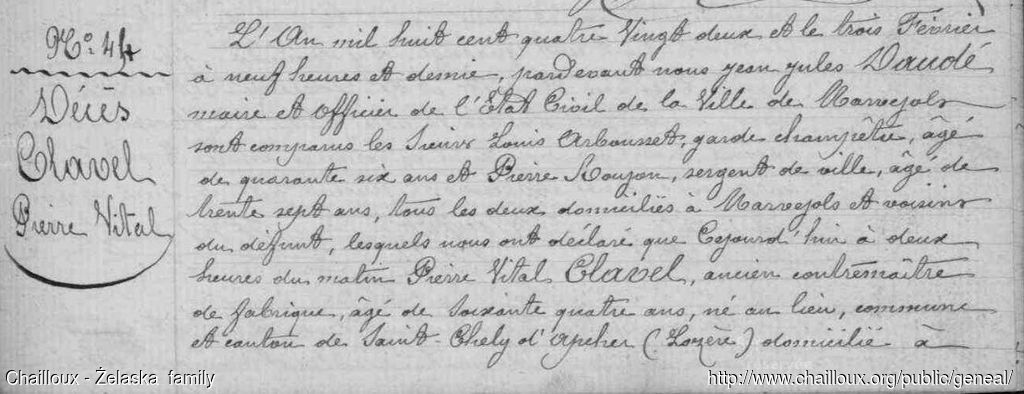 N° 44
Décès
Clavel
Pierre Vital
L'An mil huit cent quatre Vingt deux et le trois Février
à neuf heures et demie, pardevant nous jean jules Daudé
maire et Officier de l'État Civil de la Ville de Marvejols
sont comparus les Sieurs Louis Arbousset, garde champêtre, âgé
de quarante six ans et Pierre Roujon, sergent de ville, âgé de
trente sept ans, tous les deux domiciliés à Marvejols et voisins
du défunt, lesquels nous ont déclaré que Cejourd'hui à deux
heures du matin Pierre Vital Clavel, ancien contremaître
de fabrique, âgé de soixante quatre ans, né au lieu, commune
et canton de Saint-Chely d'Apcher (Lozère) domicilié à
Chailloux - Żelaska family
http://www.chailloux.org/public/geneal/